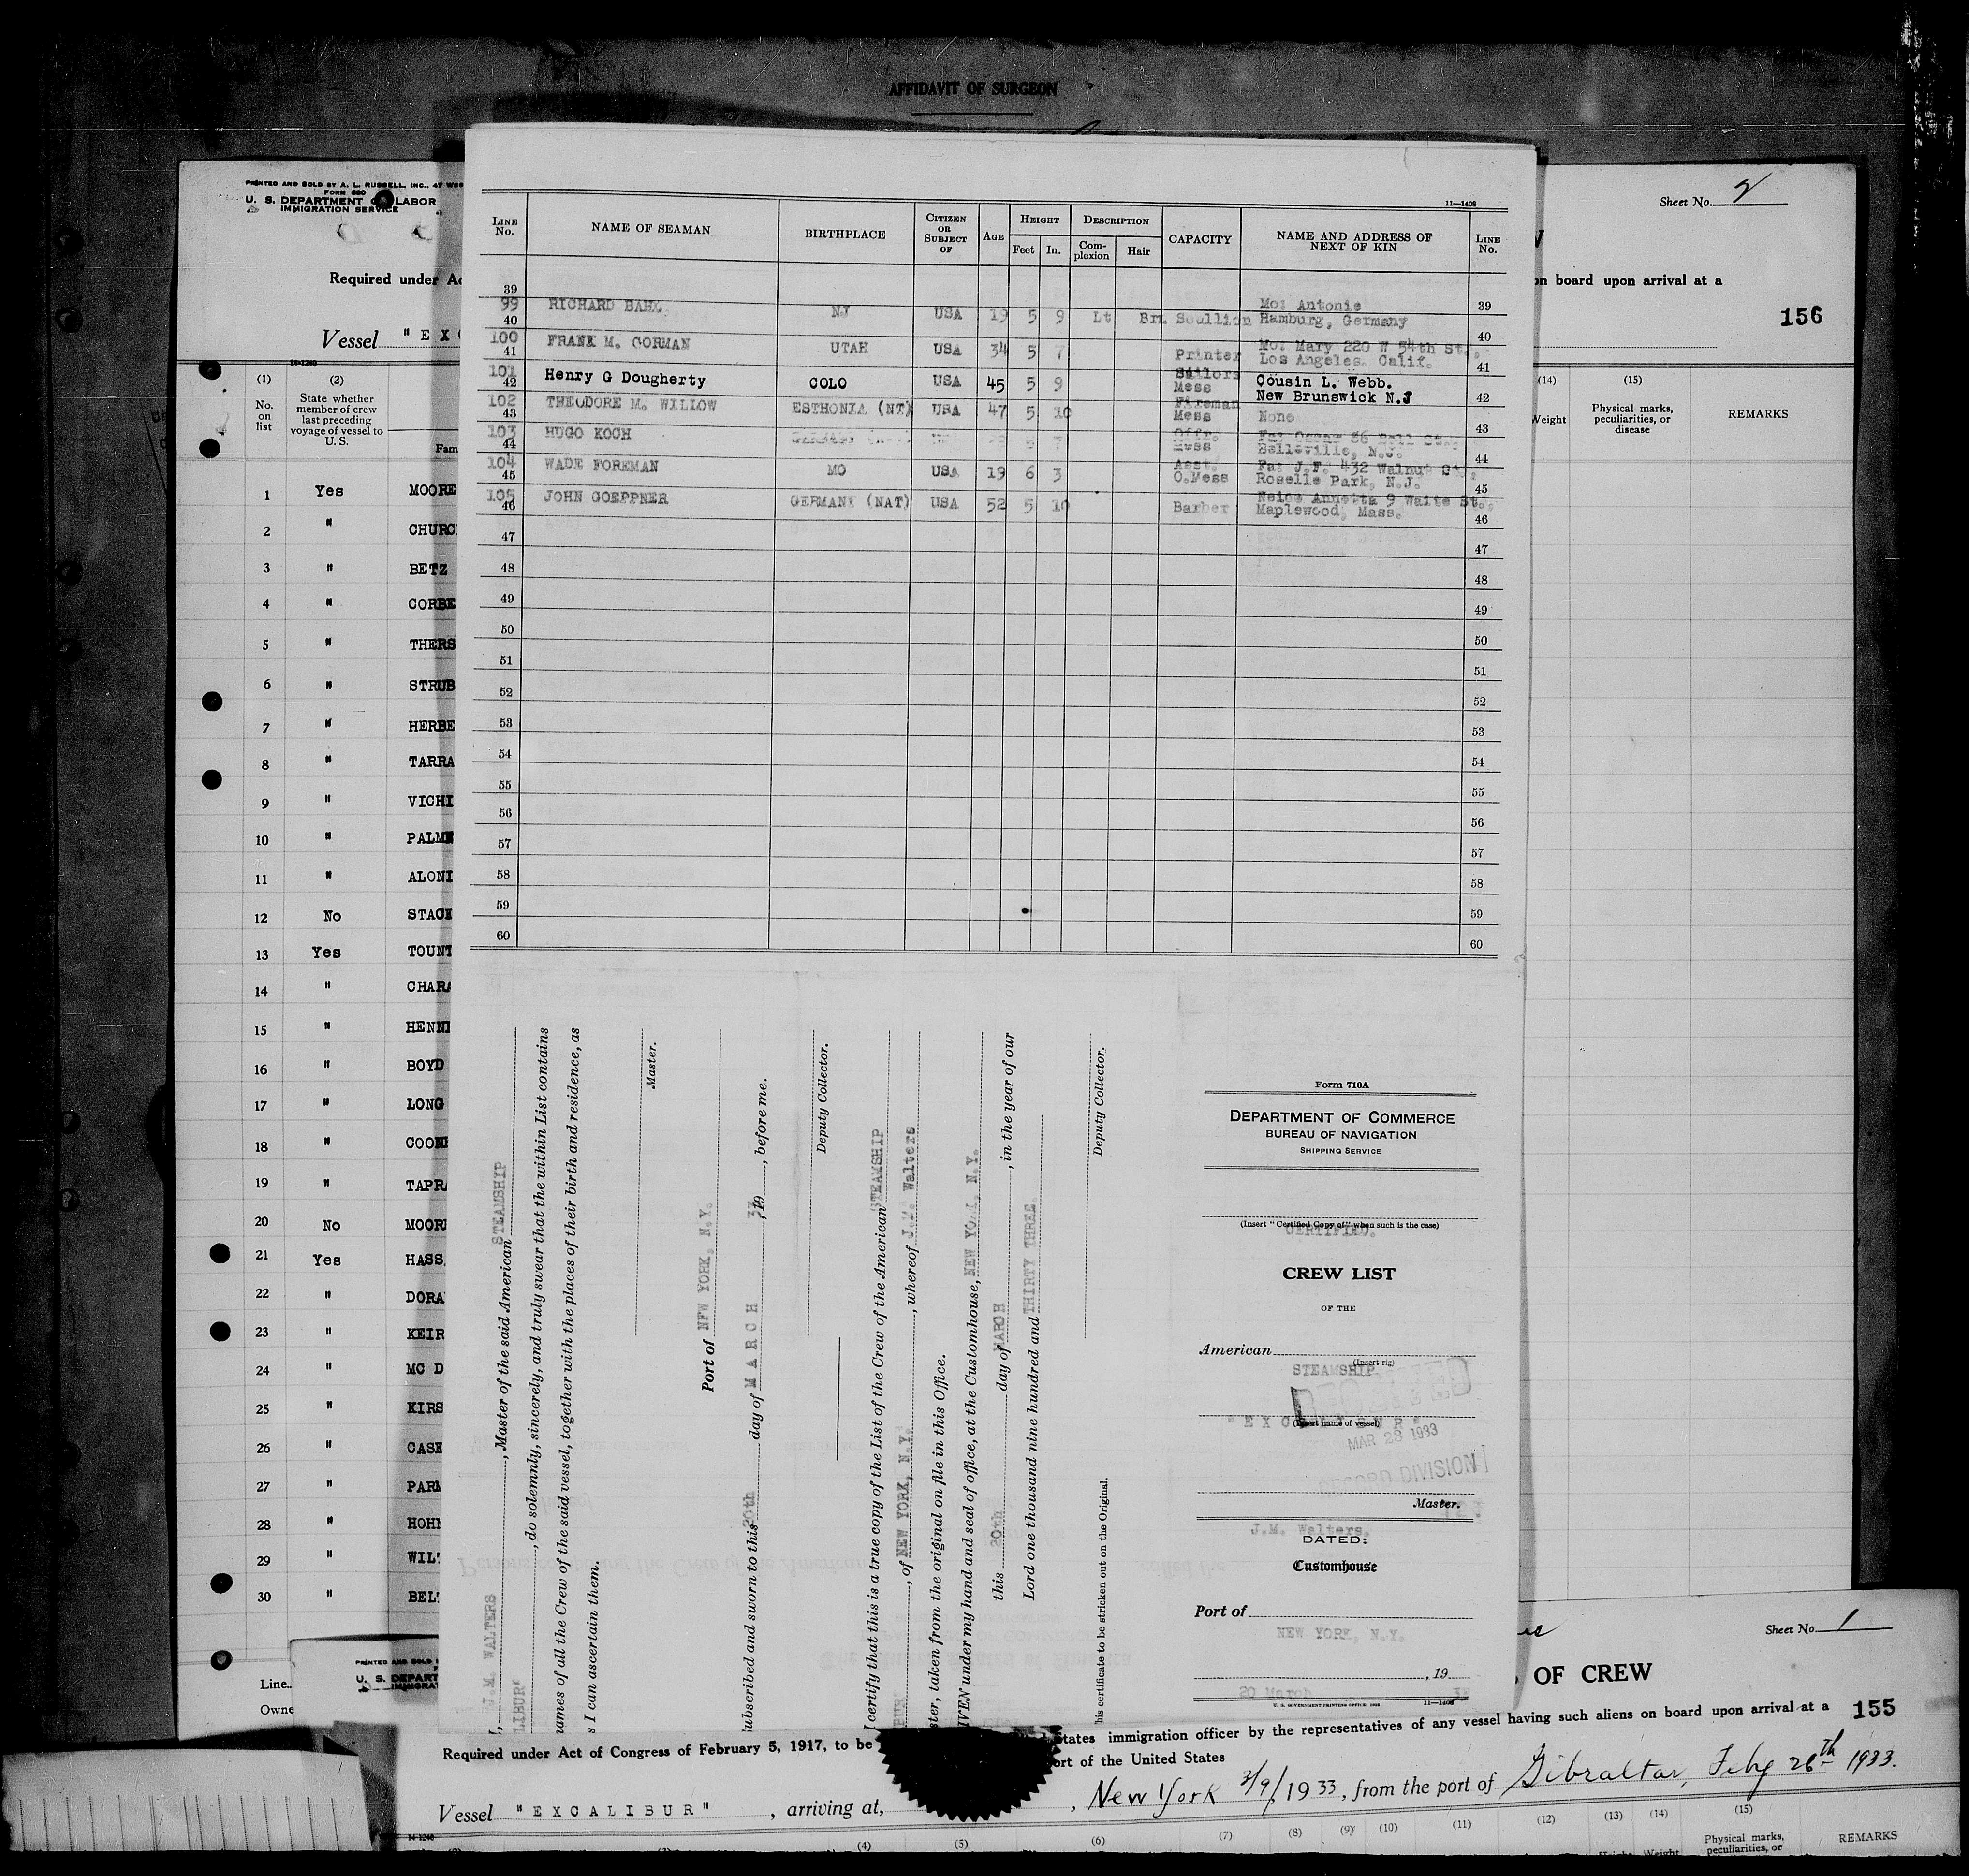 AFFIDAVIT OF SURGEON
PRINTED AND SOLD BY A. L. RUSSELL, INC., 47 WES
FORM 680
U. S. DEPARTMENT OF LABOR
IMMIGRATION SERVICE
Required under Ac
Vessel "EXC
14-1240
(1) (2)
No. on list
State whether member of crew last preceding voyage of vessel to U. S.
Fam
1 Yes MOORE
2 " CHURC
3 " BETZ
4 " CORBE
5 " THERS
6 " STRUB
7 " HERBE
8 " TARRA
9 " VICHI
10 " PALME
11 " ALONI
12 No STACK
13 Yes TOUNT
14 " CHARA
15 " HENNI
16 " BOYD
17 " LONG
18 " COONE
19 " TAPRA
20 No MOORE
21 Yes HASS
22 " DORA
23 " KEIR
24 " MC D
25 " KIRS
26 " CASE
27 " PARM
28 " HOH
29 " WIL
30 " BEL
Line
Owne
Sheet No. 2
on board upon arrival at a
156
(14) (15)
Weight
Physical marks, peculiarities, or disease
REMARKS
11—1406
LINE No.
NAME OF SEAMAN
BIRTHPLACE
CITIZEN OR SUBJECT OF
AGE
HEIGHT
Feet In.
DESCRIPTION
Complexion Hair
CAPACITY
NAME AND ADDRESS OF NEXT OF KIN
LINE No.
39 39
99 RICHARD BAHL NJ USA 19 5 9 Lt Brn Scullion Mo: Antonie
40 Hamburg, Germany 40
100 FRANK M. GORMAN UTAH USA 34 5 7 Printer Mo: Mary 220 W 54th St.,
41 Los Angeles. Calif. 41
101 Henry G Dougherty COLO USA 45 5 9 Sailors Mess Cousin L. Webb.
42 New Brunswick N.J 42
102 THEODORE M. WILLOW ESTHONIA (NT) USA 47 5 10 Fireman Mess None
43 43
103 HUGO KOCH Offr. Mess
44 Belleville, N.J. 44
104 WADE FOREMAN MO USA 19 6 3 Asst. O.Mess Fa: J.F. 432 Walnut St.,
45 Roselle Park, N.J. 45
105 JOHN GOEPPNER GERMANY (NAT) USA 52 5 10 Barber Neice Annetta 9 Waite St.,
46 Maplewood, Mass. 46
47 47
48 48
49 49
50 50
51 51
52 52
53 53
54 54
55 55
56 56
57 57
58 58
59 59
60 60
I, J.M. WALTERS, Master of the said American STEAMSHIP
LIBUR, do solemnly, sincerely, and truly swear that the within List contains
ames of all the Crew of the said vessel, together with the places of their birth and residence, as
s I can ascertain them.
Master.
Port of NEW YORK, N.Y.
ubscribed and sworn to this 20th day of MARCH, 19 33, before me.
Deputy Collector.
I certify that this is a true copy of the List of the Crew of the American STEAMSHIP
BUR, of NEW YORK, N.Y., whereof J.M. Walters
ster, taken from the original on file in this Office.
IVEN under my hand and seal of office, at the Customhouse, NEW YORK, N.Y.
this 20th day of MARCH, in the year of our
Lord one thousand nine hundred and THIRTY THREE.
Deputy Collector.
his certificate to be stricken out on the Original.
Form 710A
DEPARTMENT OF COMMERCE
BUREAU OF NAVIGATION
SHIPPING SERVICE
(Insert "Certified Copy of" when such is the case)
CERTIFIED.
CREW LIST
OF THE
American
(Insert rig)
STEAMSHIP
(Insert name of vessel)
"EXCALIBUR"
MAR 23 1933
RECORD DIVISION
Master.
J.M. Walters.
DATED:
Customhouse
Port of
NEW YORK, N.Y.
, 19
20 March 33
U. S. GOVERNMENT PRINTING OFFICE
11—1406
PRINTED AND SOLD
U. S. DEPART
IMMIGRA
Sheet No. 1
OF CREW
155
Required under Act of Congress of February 5, 1917, to be
States immigration officer by the representatives of any vessel having such aliens on board upon arrival at a
ort of the United States
Vessel "EXCALIBUR", arriving at, , New York 3/9/1933, from the port of Gibraltar, Feby 26th 1933.
14-1240
(4) (5) (6) (7) (8) (9) (10) (11) (12) (13) (14) (15)
Height Weight
Physical marks, peculiarities, or
REMARKS